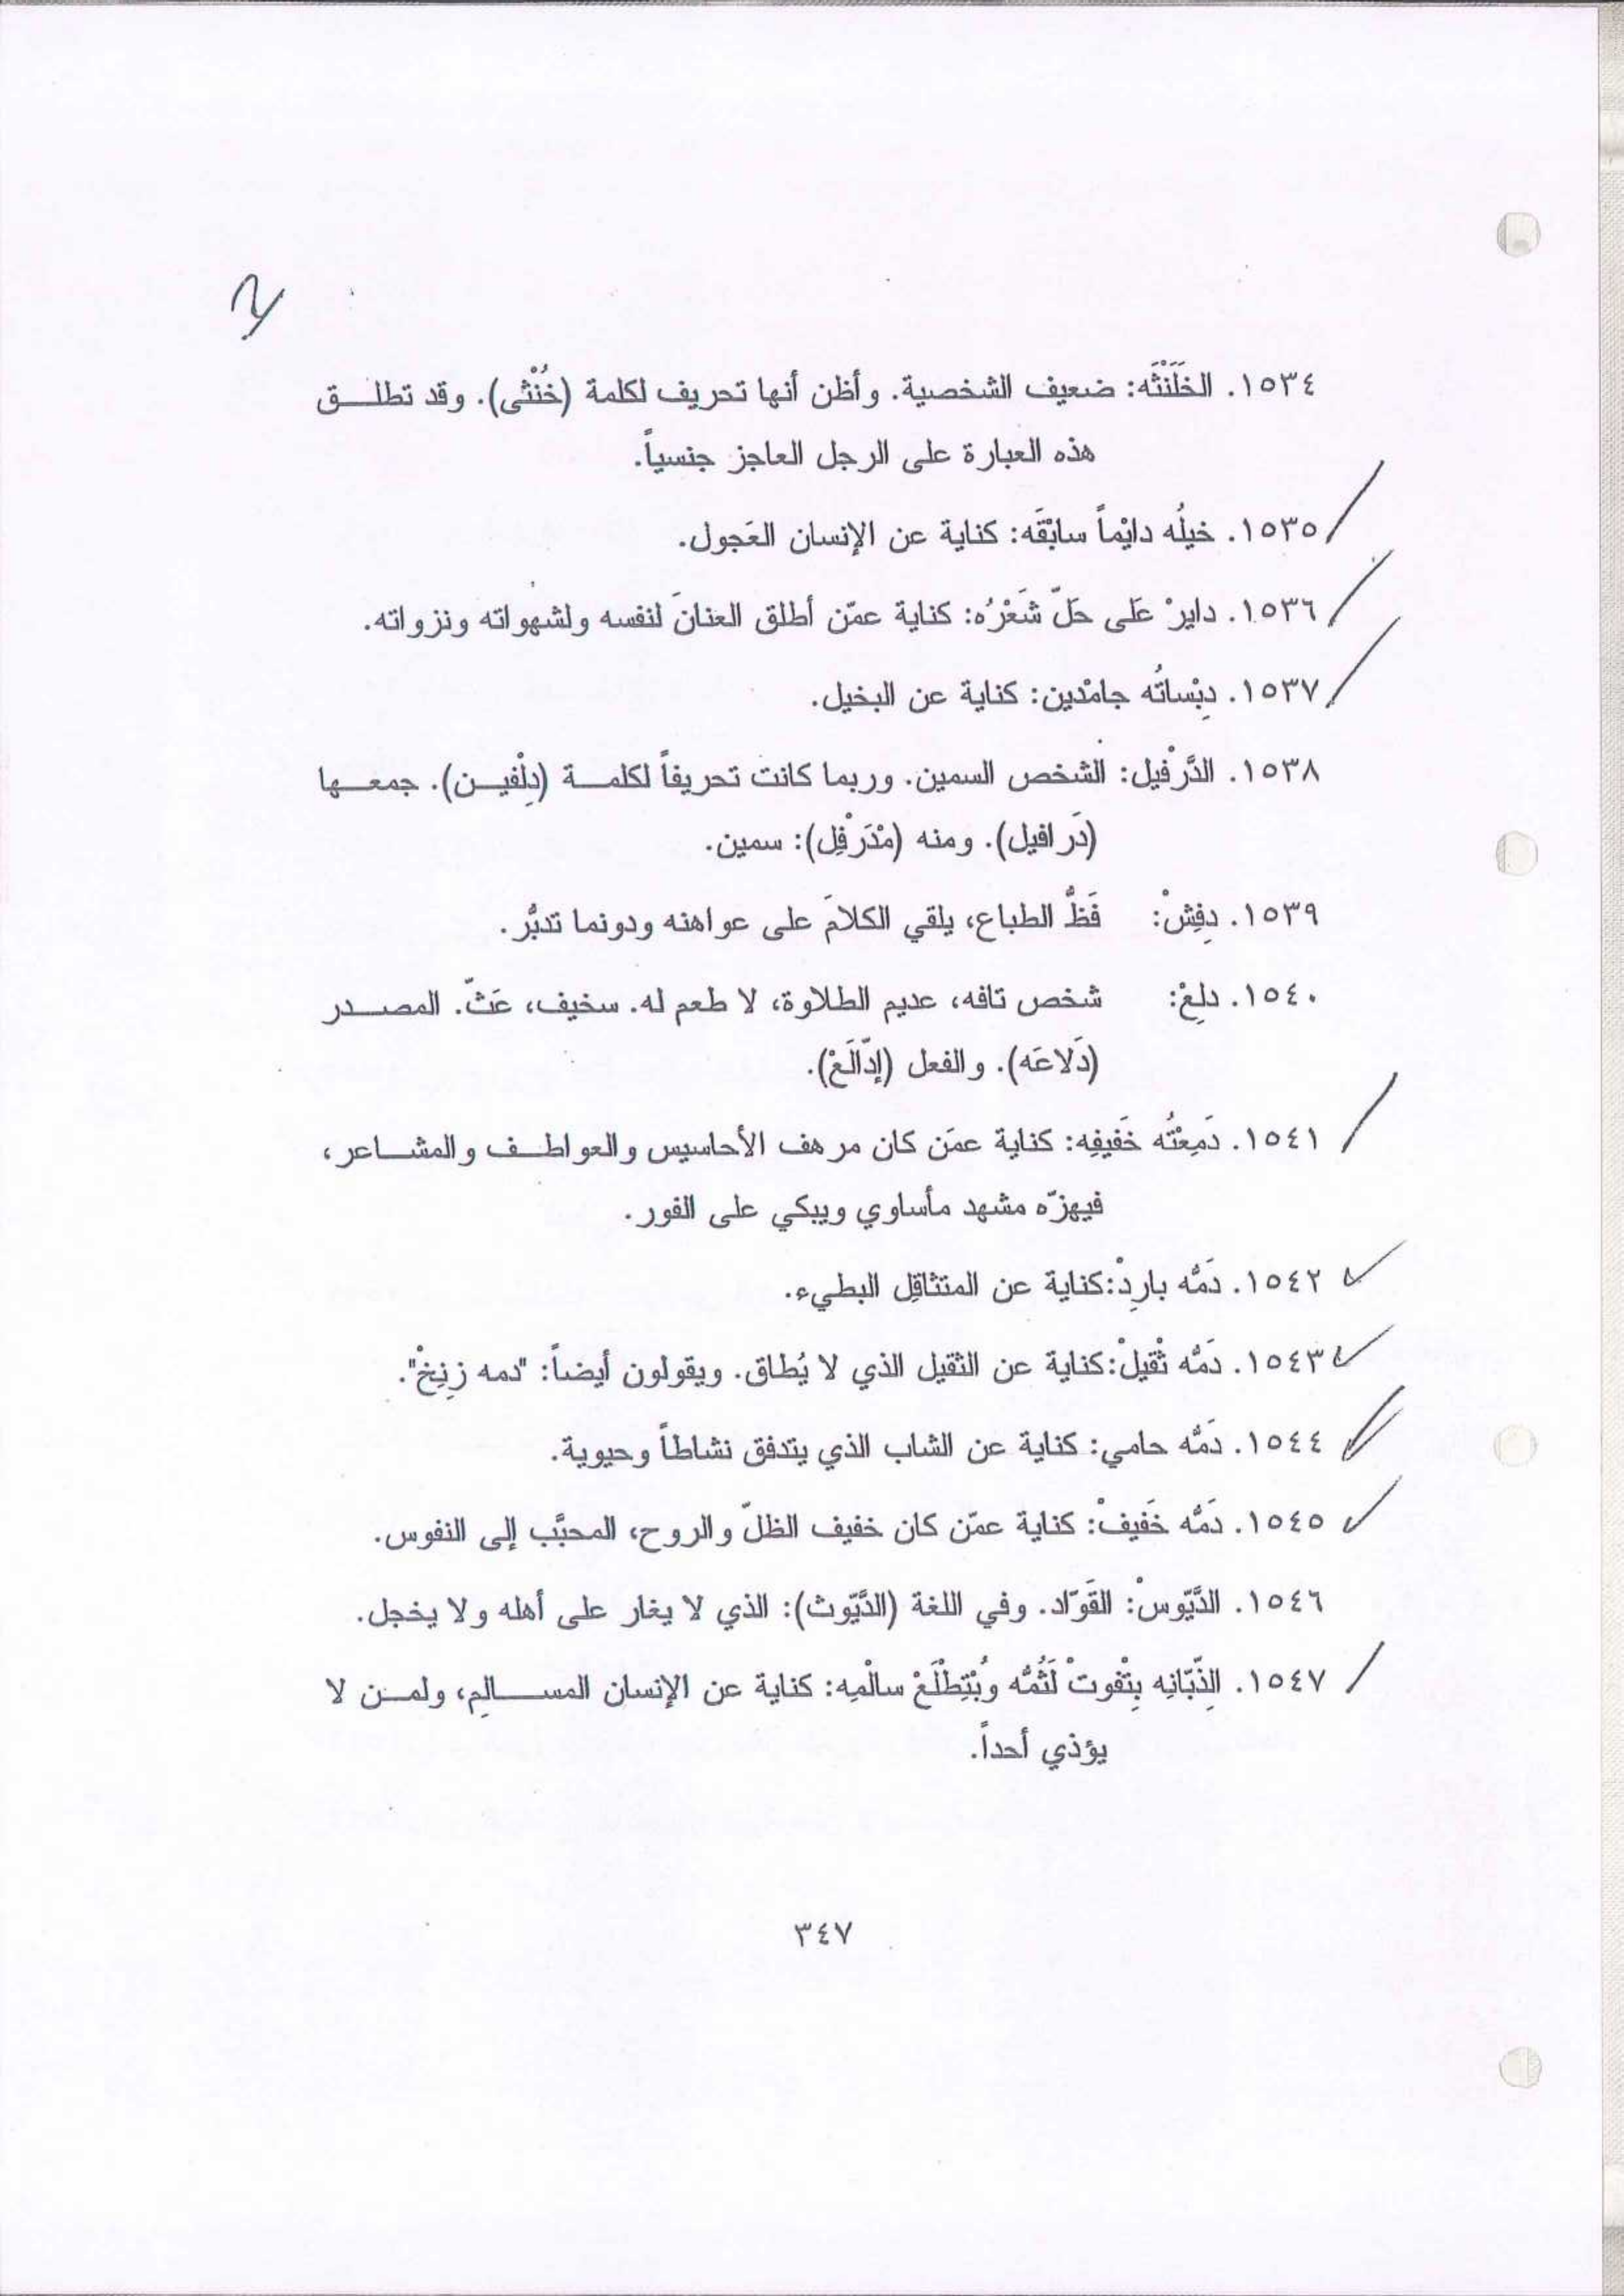 ١٥٣٤. الخَلَنْثَه: ضعيف الشخصية. وأظن أنها تحريف لكلمة (خُنْثى). وقد تطلـــق
هذه العبارة على الرجل العاجز جنسياً.
١٥٣٥. خيلُه دايْماً سابْقَه: كناية عن الإنسان العَجول.
١٥٣٦. دايرْ عَلى حَلّ شَعْرُه: كناية عمّن أطلق العنانَ لنفسه ولشهواته ونزواته.
١٥٣٧. دِبْساتُه جامْدين: كناية عن البخيل.
١٥٣٨. الدَّرْفيل: الشخص السمين. وربما كانت تحريفاً لكلمـــة (دِلْفيـــن). جمعـــها
(دَرافيل). ومنه (مْدَرْفِل): سمين.
١٥٣٩. دِفِشْ: فَظُّ الطباع، يلقي الكلامَ على عواهنه ودونما تدبُّر.
١٥٤٠. دلِغْ: شخص تافه، عديم الطلاوة، لا طعم له. سخيف، غَثّ. المصـــدر
(دَلاغَه). والفعل (إدّالَغْ).
١٥٤١. دَمِعْتُه خَفيفِه: كناية عمَن كان مرهف الأحاسيس والعواطـــف والمشـــاعر،
فيهزّه مشهد مأساوي ويبكي على الفور.
١٥٤٢. دَمُّه بارِدْ:كناية عن المتثاقِل البطيء.
١٥٤٣. دَمُّه تْقيلْ:كناية عن الثقيل الذي لا يُطاق. ويقولون أيضاً: "دمه زنِخْ".
١٥٤٤. دَمُّه حامي: كناية عن الشاب الذي يتدفق نشاطاً وحيوية.
١٥٤٥. دَمُّه خَفيفْ: كناية عمّن كان خفيف الظلّ والروح، المحبَّب إلى النفوس.
١٥٤٦. الدَّيّوسْ: القَوّاد. وفي اللغة (الدَّيّوث): الذي لا يغار على أهله ولا يخجل.
١٥٤٧. الذِّبّانِه بِتْفوتْ لَتُمُّه وُبْتِطْلَعْ سالْمِه: كناية عن الإنسان المســـالِم، ولمـــن لا
يؤذي أحداً.
٣٤٧